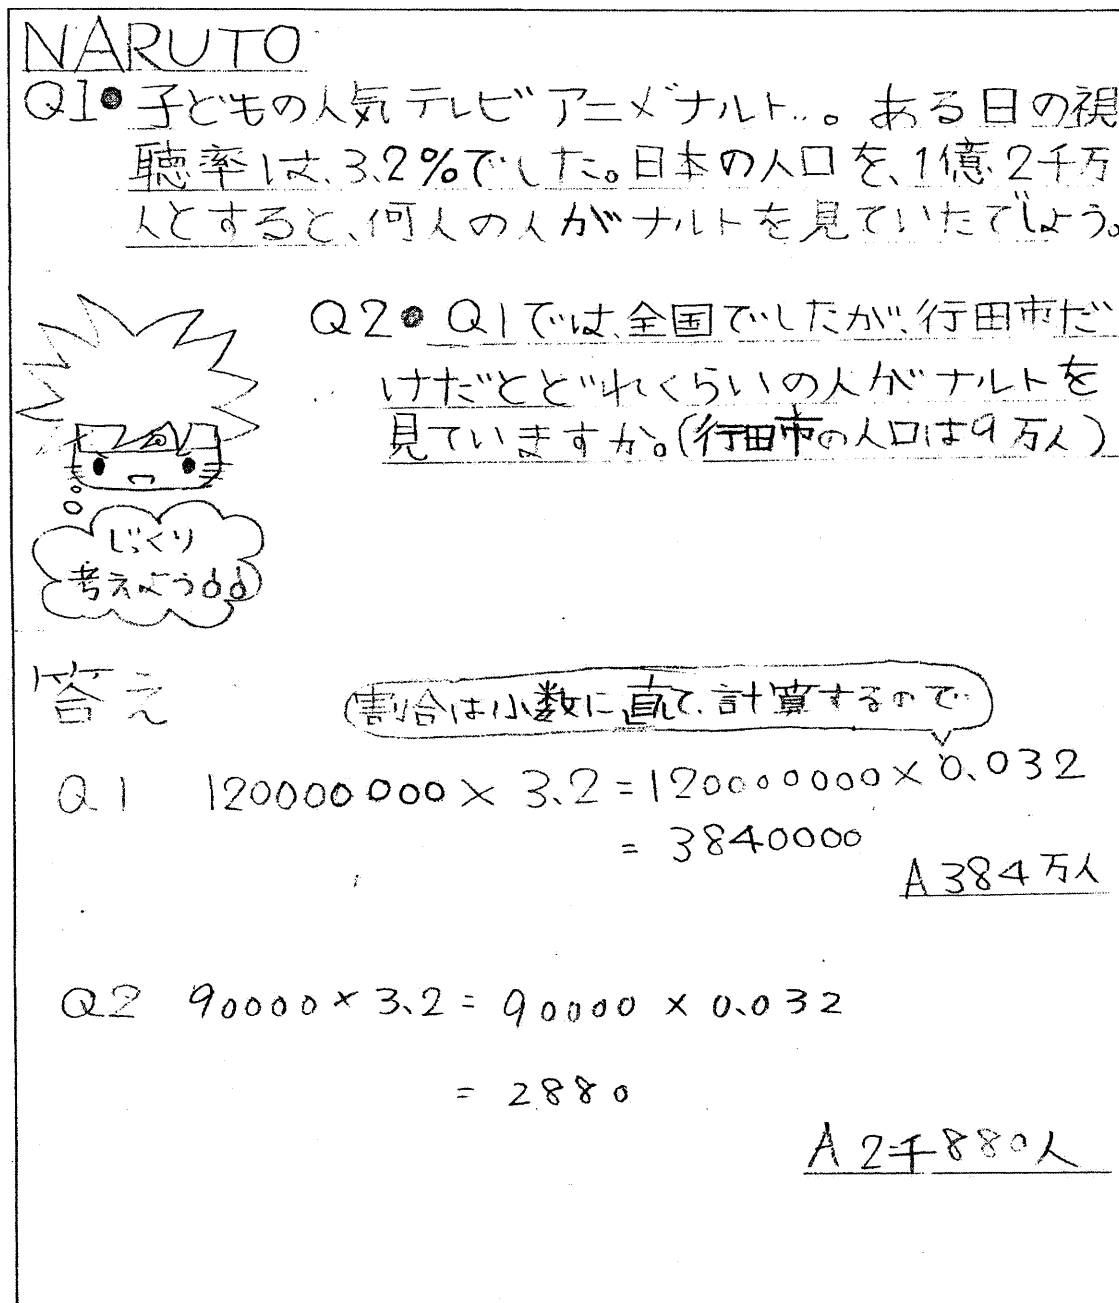 NARUTO
Q1● 子どもの人気テレビアニメナルト…。ある日の視
聴率は、3.2%でした。日本の人口を、1億2千万
人とすると、何人の人がナルトを見ていたでしょう。
Q2● Q1では、全国でしたが、行田市だ
けだとどれくらいの人がナルトを
見ていますか。(行田市の人口は9万人)
じっくり
考えよう
答え
割合は小数に直して、計算するので
Q1 120000000×3.2=120000000×0.032
=3840000
A384万人
Q2 90000×3.2=90000×0.032
=2880
A2千880人